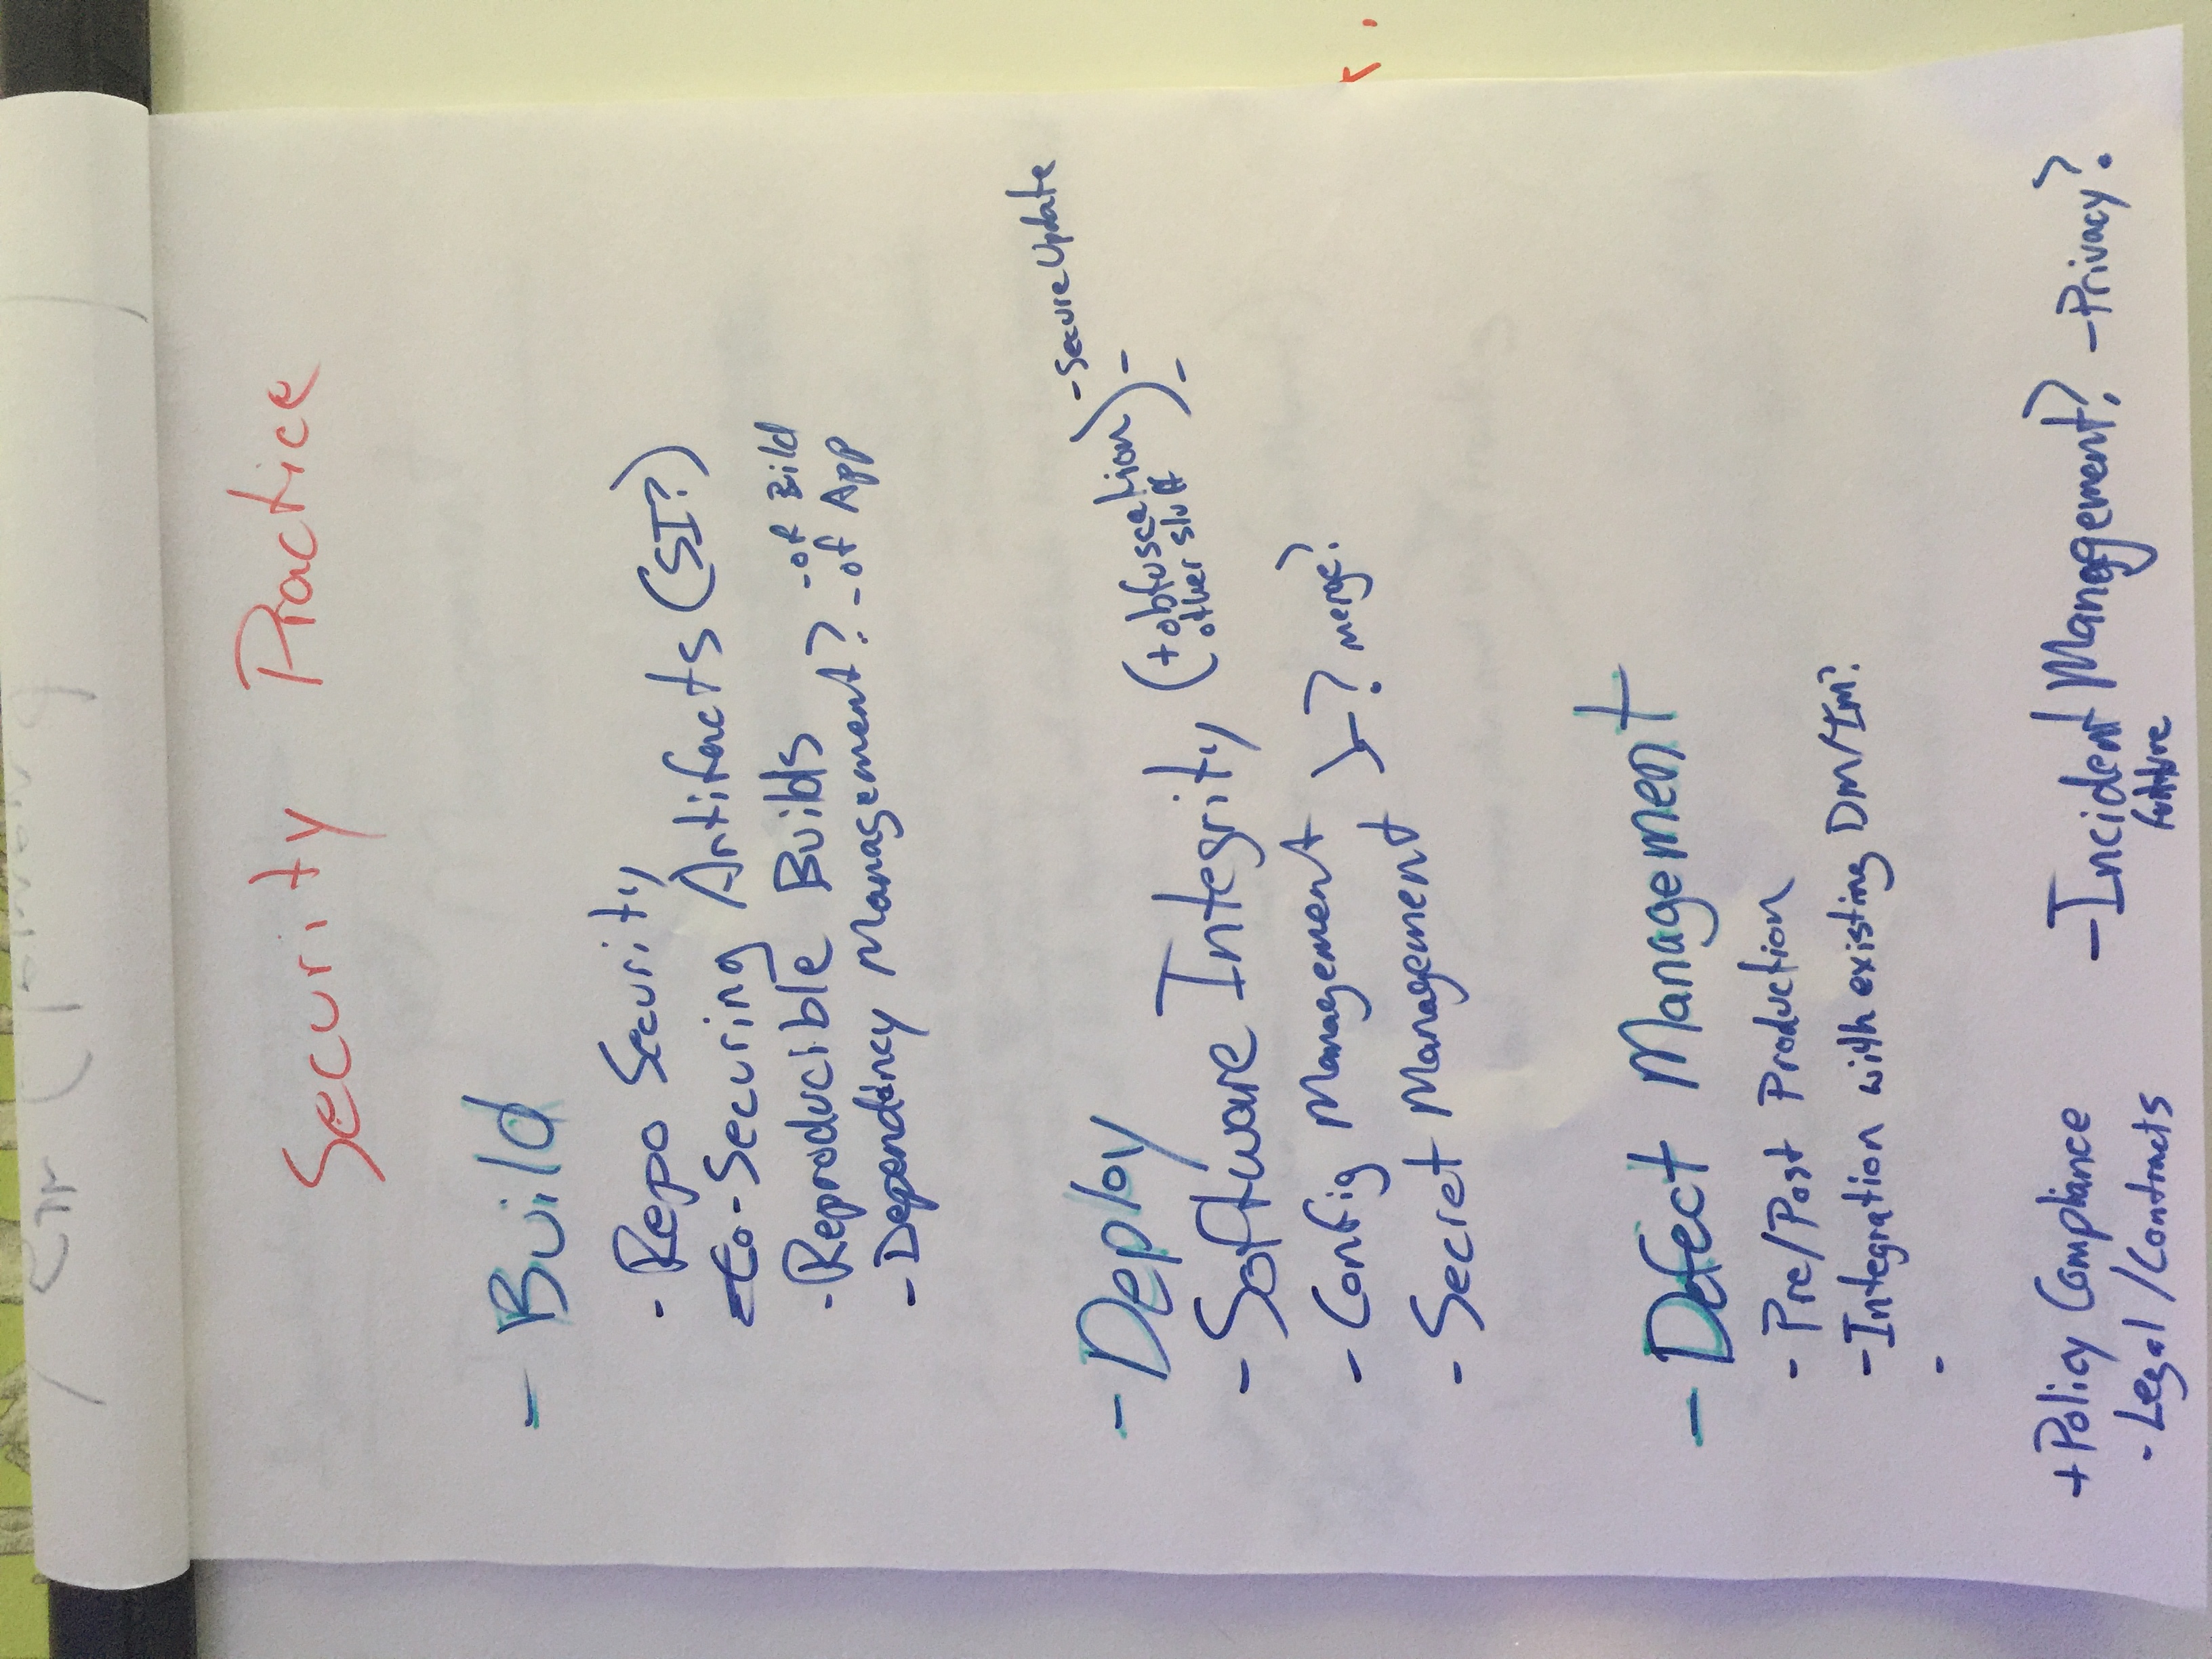 Security Practice
- Build
- Repo Security
- Securing Artifacts (SI?)
- Reproducible Builds
- Dependency Management? - of Bild
- of App
- Deploy
- Software Integrity (+ obfuscation
other stuff) - Secure Update
-
-
- Config Management
- Secret Management
>-? merge?
- Defect Management
- Pre/Post Production
- Integration with existing DM/IM?
-
+ Policy Compliance
- Legal / Contracts
- Incident Management? - Privacy?
future